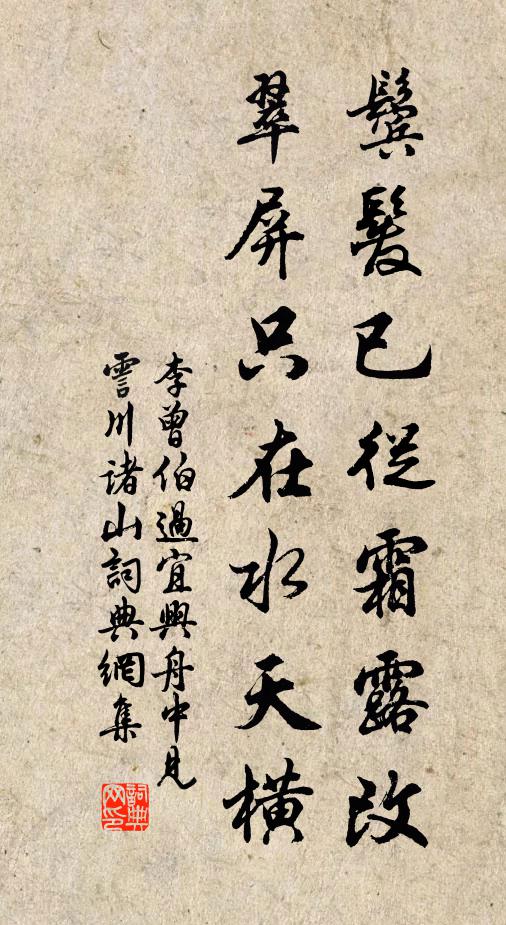 鬢髮已從霜露改
翠屏只在水天橫
李曾伯過宜興舟中見
霅川諸山詞典網集
詞典
网印